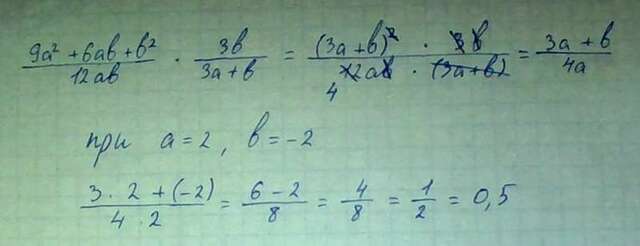 (9a² + 6ab + b²)/(12ab) · (3b)/(3a + b) = ((3a + b)² · 3b)/(12ab · (3a + b)) = (3a + b)/(4a)
4
при a = 2, b = -2
(3 · 2 + (-2))/(4 · 2) = (6 - 2)/8 = 4/8 = 1/2 = 0,5